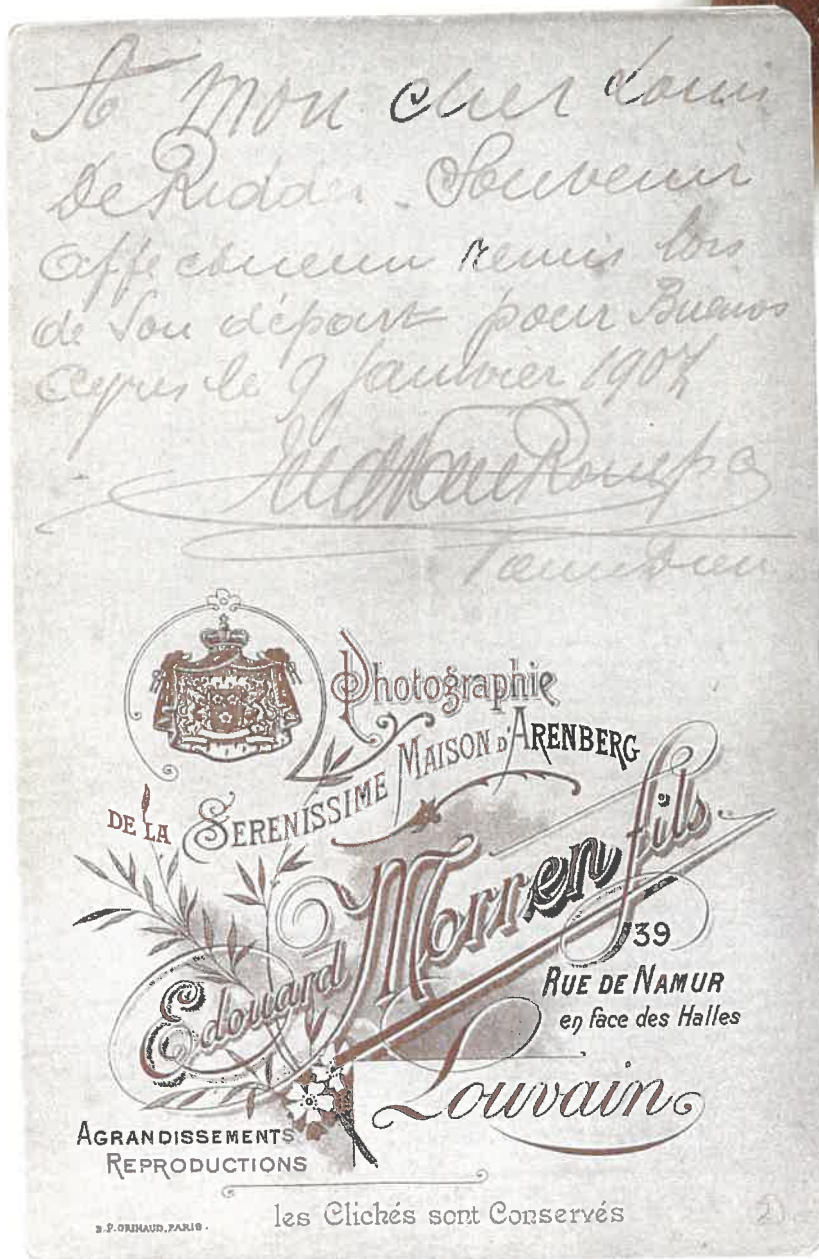 A mon cher Louis
De Ridder. Souvenir
affectueux remis lors
de son départ pour Buenos
Ayres le 9 Janvier 1907
Photographie
DE LA SERENISSIME MAISON D'ARENBERG
Edouard Morren fils
39
RUE DE NAMUR
en face des Halles
Louvain
AGRANDISSEMENTS
REPRODUCTIONS
les Clichés sont Conservés
B.P. GRIMAUD, PARIS.